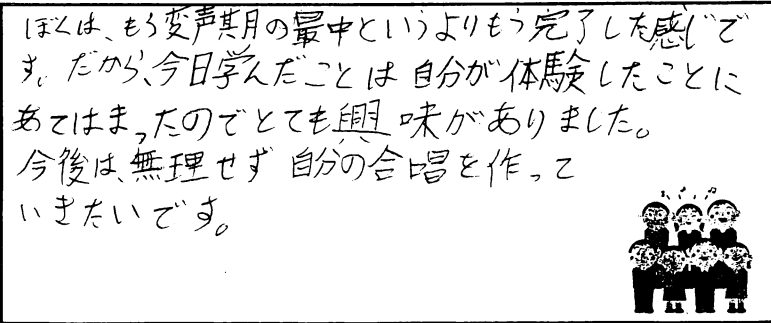 ぼくは、もう変声期の最中というよりもう完了した感じで
す。だから、今日学んだことは自分が体験したことに
あてはまったのでとても興味がありました。
今後は、無理せず自分の合唱を作って
いきたいです。